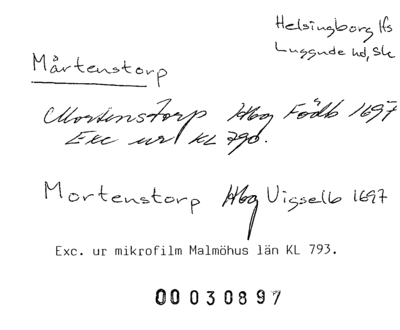 Helsingborg lfs
Luggude hd, Sk
Mårtenstorp
Mortenstorp Hbg Födb 1697
Exc ur KL 790.
Mortenstorp Hbg Vigselb 1697
Exc. ur mikrofilm Malmöhus län KL 793.
00030897